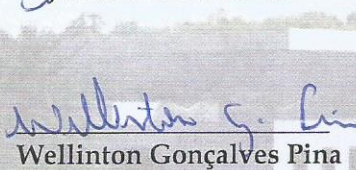 Wellinton G. Pina
Wellinton Gonçalves Pina